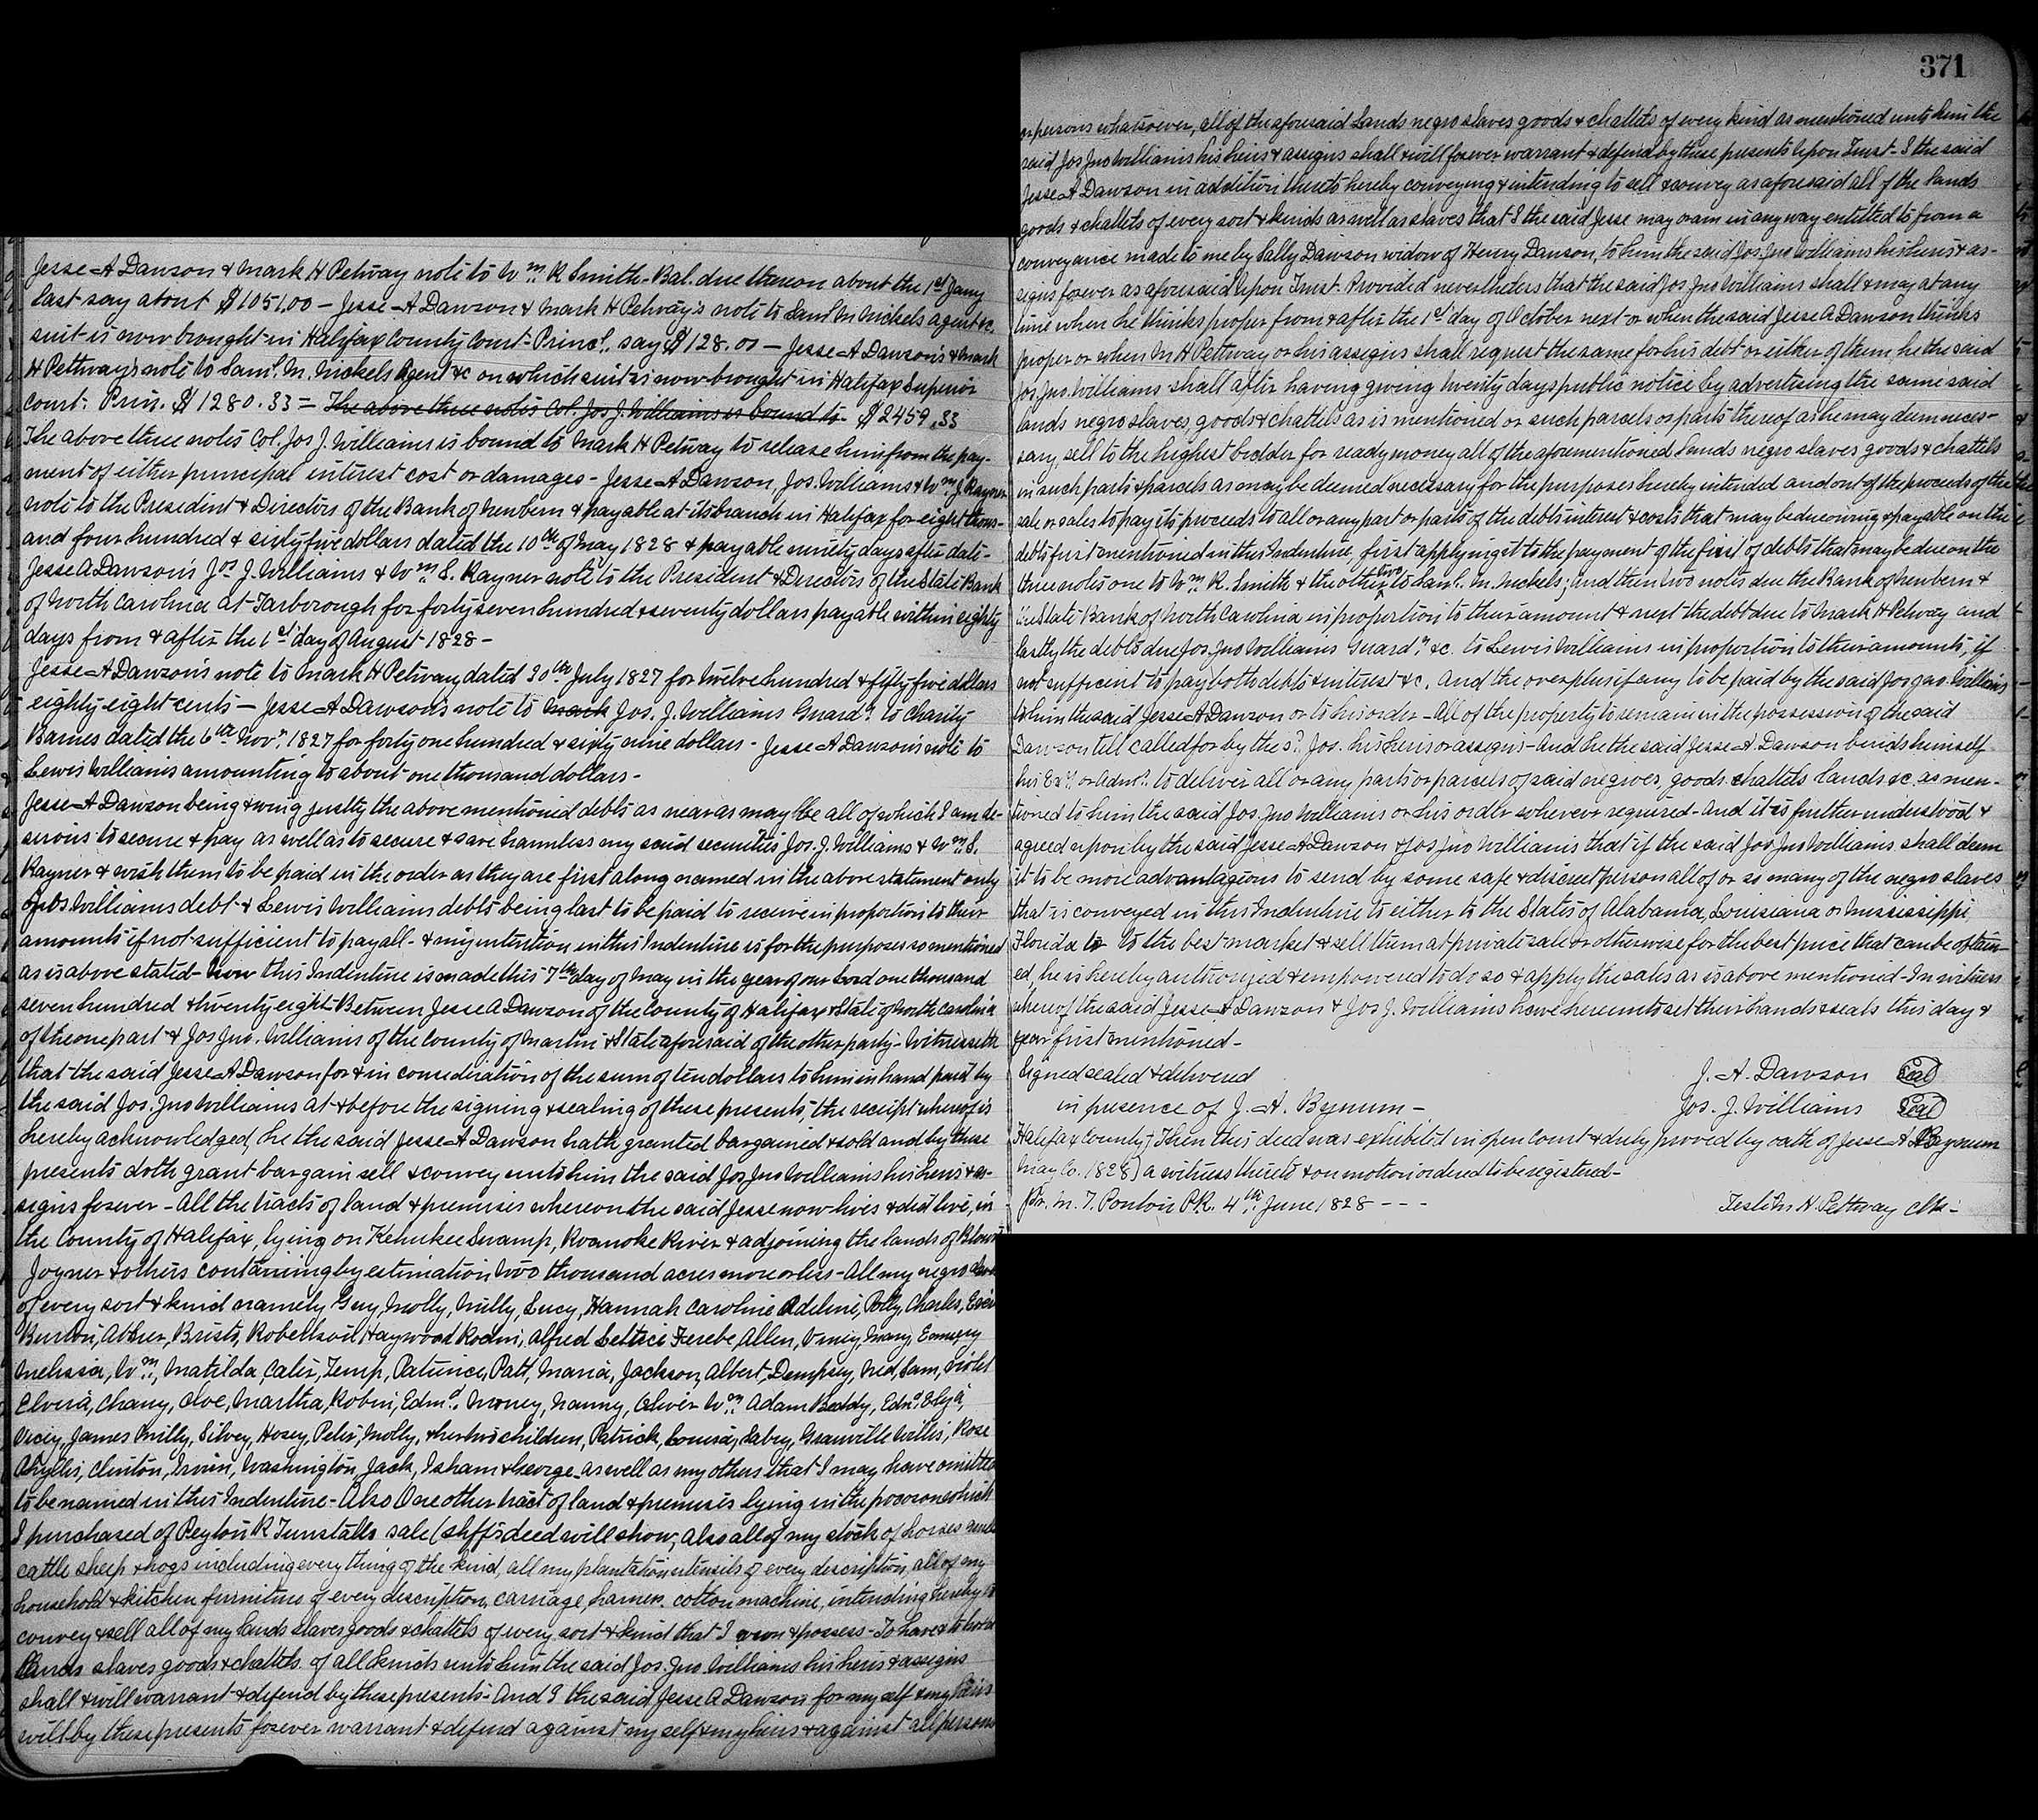 Jesse A Dawson & Mark H Petway note to Wm. R Smith - Bal. due thereon about the 1st Jany
last say about $1051.00 - Jesse A Dawson & Mark H Petway's note to Saml. M Nickels agent &c.
suit is now brought in Halifax County Court - Princl. say $128.00 - Jesse A Dawson's & Mark
H Pettway's note to Saml. M. Nickels Agent &c on which suit is now brought in Halifax Superior
Court. Prin. $1280.33 = The above three notes Col. Jos J. Williams is bound to $2459.33
The above three notes Col. Jos J. Williams is bound to Mark H Petway to release him from the pay-
ment of either principal interest cost or damages - Jesse A Dawson, Jos. Williams & Wm. J. Rayner
note to the President & Directors of the Bank of Newbern & payable at its branch in Halifax for eight thous-
and four hundred & sixty five dollars dated the 10th of May 1828 & payable ninety days after date -
Jesse A Dawson's Jos J. Williams & Wm. S. Rayner note to the President & Directors of the State Bank
of North Carolina at Tarborough for forty seven hundred & seventy dollars payable within eighty
days from & after the 1st day of August 1828 -
Jesse A Dawson's note to Mark H Petway dated 30th July 1827 for twelve hundred & fifty five dollars
eighty eight cents - Jesse A Dawson's note to Mark Jos. J. Williams Guardn. to Charity
Barnes dated the 6th Novr. 1827 for forty one hundred & sixty nine dollars - Jesse A Dawson's note to
Lewis Williams amounting to about one thousand dollars -
Jesse A Dawson being & owing justly the above mentioned debts as near as may be all of which I am de-
sirous to secure & pay as well as to secure & save harmless my said securities Jos. J. Williams & Wm. S.
Rayner & wish them to be paid in the order as they are first along named in the above statement only
Jos Williams debt & Lewis Williams debts being last to be paid to receive in proportion to their
amounts if not sufficient to pay all - & my intention in this Indenture is for the purposes so mentioned
as is above stated - Now this Indenture is made this 7th day of May in the year of our Lord one thousand
seven hundred & twenty eight - Between Jesse A Dawson of the County of Halifax & State of North Carolina
of the one part & Jos Jno. Williams of the County of Martin & State aforesaid of the other party - Witnesseth
that the said Jesse A Dawson for & in consideration of the sum of ten dollars to him in hand paid by
the said Jos. Jno Williams at & before the signing & sealing of these presents, the receipt whereof is
hereby acknowledged, he the said Jesse A Dawson hath granted bargained & sold and by these
presents doth grant bargain sell & convey unto him the said Jos Jno Williams his heirs & as-
signs forever - All the tracts of land & premises whereon the said Jesse now lives & did live, in
the County of Halifax, lying on Kehukee Swamp, Roanoke River & adjoining the lands of Blount
Joyner & others containing by estimation two thousand acres more or less - All my negro slaves
of every sort & kind namely Guy, Molly, Milly, Lucy, Hannah Caroline Adeline, Polly, Charles,
Burton, Abner, Bristo, Robertson Haywood Rodin, Alfred Lettice Ferebe, Allen, Mary,
Melissa, Wm., Matilda, Cater, Temp, Patience, Patt, Maria, Jackson, Albert, Dempsey, Ned, Sam, Violet
Elvira, Chany, Martha, Robin, Edmd., Money, Nanny, Oliver Wm. Adam Beddy, Edmd. Elija,
Vicey, James Milly, Silvey, Hosey, Peter, Molly, & her two children, Patrick, Louisa, Sabry, Granville Willis, Rose
Phyllis, Clinton, Irvin, Washington, Jack, Isham & George as well as my others that I may have omitted
to be named in this Indenture - Also One other tract of land & premises lying in the pocoson which
I purchased of Peyton R Tunstalls sale (shff's deed will show, also all of my stock of horses mules
cattle sheep & hogs including every thing of the kind, all my plantation utensils of every description, all of my
household & kitchen furniture of every description, carriage, harness. cotton machine, intending hereby to
convey & sell all of my lands slaves goods & chattels of every sort & kind that I own & possess - To have & to hold
lands slaves goods & chattels of all kinds unto him the said Jos. Jno. Williams his heirs & assigns
shall & will warrant & defend by these presents - And I the said Jesse A Dawson for myself & my heirs
will by these presents forever warrant & defend against my self & my heirs & against all persons
371
or persons whatsoever, all of the aforesaid Lands negro slaves goods & chattels of every kind as mentioned unto him the
said Jos Jno Williams his heirs & assigns shall & will forever warrant & defend by these presents Upon Trust - I the said
Jesse A Dawson in addition thereto hereby conveying & intending to sell & convey as aforesaid all of the lands
goods & chattels of every sort & kinds as well as slaves that I the said Jesse may or am in any way entitled to from a
conveyance made to me by Sally Dawson widow of Henry Dawson, to him the said Jos. Jno Williams his heirs & as-
signs forever as aforesaid Upon Trust. Provided nevertheless that the said Jos Jno Williams shall & may at any
time when he thinks proper from & after the 1st day of October next or when the said Jesse A Dawson thinks
proper or when M H Pettway or his assigns shall request the same for his debt or either of them he the said
Jos. Jno. Williams shall after having giving twenty days public notice by advertising the same said
lands negro slaves, goods & chattels as is mentioned or such parcels or parts thereof as he may deem neces-
sary, sell to the highest bidder for ready money all of the aforementioned Lands negro slaves goods & chattels
in such parts & parcels as may be deemed necessary for the purposes hereby intended and out of the proceeds of the
sale or sales to pay its proceeds to all or any part or parts of the debts interest & costs that may be due owing & payable on the
debts first mentioned in this Indenture, first applying it to the payment of the first of debts that may be due on the
three notes one to Wm. R. Smith & the other two to Saml. M. Nickels; and then two notes due the Bank of Newbern &
the State Bank of North Carolina in proportion to their amount & next the debt due to Mark H Petway and
lastly the debts due Jos Jno Williams Guardn. &c. to Lewis Williams in proportion to their amounts, if
not sufficient to pay both debts & interest &c. And the overplus if any to be paid by the said Jos Jno. Williams
to him the said Jesse A Dawson or to his order - All of the property to remain in the possession of the said
Dawson till called for by the sd. Jos. his heirs or assigns - And he the said Jesse A Dawson binds himself
his Exr. or Admr. to deliver all or any parts or parcels of said negroes, goods chattels lands &c. as men-
tioned to him the said Jos. Jno Williams or his order wherever required - And it is further understood &
agreed upon by the said Jesse A Dawson & Jos Jno Williams that if the said Jos Jno Williams shall deem
it to be more advantagious to send by some safe & discreet person all of or so many of the negro slaves
that is conveyed in this Indenture to either to the States of Alabama, Louisiana or Mississippi,
Florida to to the best market & sell them at private sale or otherwise for the best price that can be obtain-
ed, he is hereby authorized & empowered to do so & apply the sales as is above mentioned - In witness
whereof the said Jesse A Dawson & Jos J. Williams have hereunto set their hands & seals this day &
year first mentioned -
Signed sealed & delivered J. A. Dawson Seal
in presence of J. A. Bynum - Jos. J. Williams Seal
Halifax County } Then this deed was exhibited in open Court & duly proved by oath of Jesse A Bynum
May Co. 1828 } a witness thereto & on motion ordered to be registered -
Pr. M. T. Ponton P.R. 4th June 1828 - - - Teste M H. Pettway Clk -